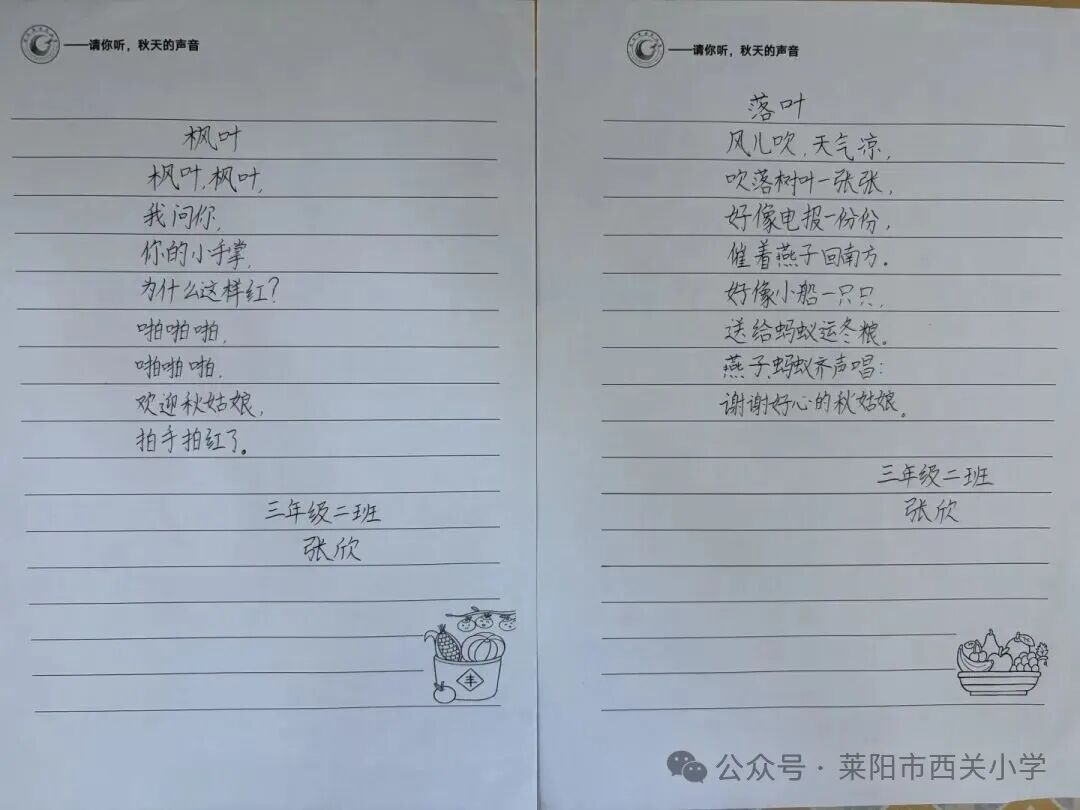 ——请你听，秋天的声音
枫叶
枫叶，枫叶，
我问你，
你的小手掌，
为什么这样红？
啪啪啪，
啪啪啪，
欢迎秋姑娘，
拍手拍红了。
三年级二班
张欣
丰
——请你听，秋天的声音
落叶
风儿吹，天气凉，
吹落树叶一张张，
好像电报一份份，
催着燕子回南方。
好像小船一只只，
送给蚂蚁运冬粮。
燕子、蚂蚁齐声唱：
谢谢好心的秋姑娘。
三年级二班
张欣
公众号·莱阳市西关小学